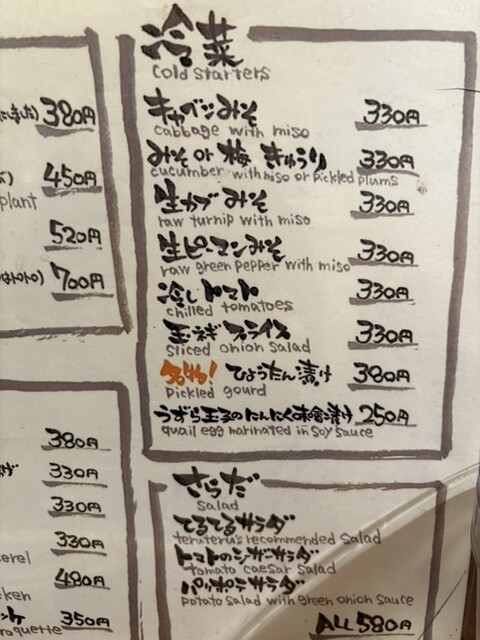 冷菜
cold starters
キャベツみそ 330円
cabbage with miso
みそ or 梅 きゅうり 330円
cucumber with miso or pickled plums
生カブみそ 330円
raw turnip with miso
生ピーマンみそ 330円
raw green pepper with miso
冷しトマト 330円
chilled tomatoes
玉ネギスライス 330円
sliced onion salad
名物! ひょうたん漬け 380円
pickled gourd
うずら玉子のにんにく味噌漬け 250円
quail egg marinated in soy sauce
さらだ
salad
てるてるサラダ
teruteru's recommended salad
トマトのシーザーサラダ
tomato caesar salad
パッポテサラダ
potato salad with green onion sauce
ALL 580円
380円
450円
plant
520円
700円
380円
330円
330円
330円
erel
480円
cken
350円
roquette